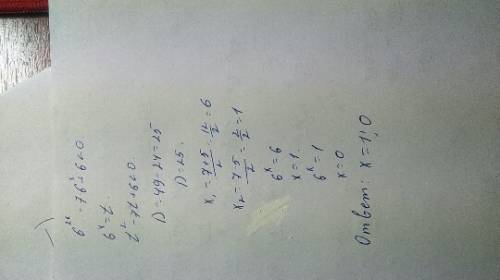 6^2x - 7·6^x + 6 = 0
6^x = t
t² - 7t + 6 = 0
D = 49 - 24 = 25
D = 25.
x₁ = (7+5)/2 = 12/2 = 6
x₂ = (7-5)/2 = 2/2 = 1
6^x = 6
x = 1.
6^x = 1
x = 0
Ответ: x = 1; 0